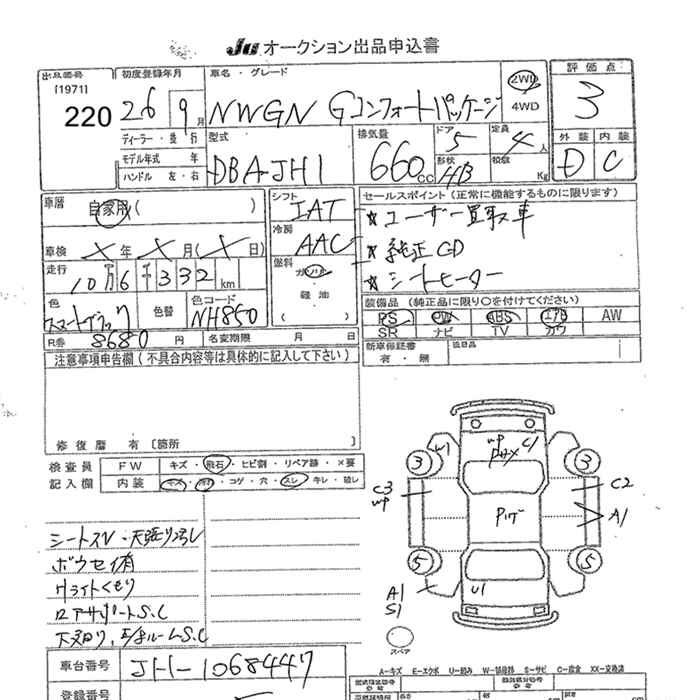 Ju オークション出品申込書
出品番号 初度登録年月 車名・グレード 2WD 評価点
[1971] 220 26 9月 NWGN Gコンフォートパッケージ 4WD 3
ディーラー・並行 型式 排気量 ドア 定員 外装 内装
モデル年式 年 DBA JH1 660cc 5 4人 D C
ハンドル 左・右 形状 HB 積載 Kg
車歴 自家用( ) シフト IAT セールスポイント(正常に機能するものに限ります)
冷房 AAC ★ユーザー買取車
車検 X年X月(X日) 燃料 ★純正CD
走行 10万6千332km ガソリン ★シートヒーター
軽油
色 スマートブラック 色替 色コード NH850 ( ) 装備品(純正品に限り○を付けてください)
PS PW ABS エアB AW
R券 8680円 名変期限 月 日 SR ナビ TV カワ
注意事項申告欄(不具合内容等は具体的に記入して下さい) 新車保証書 有・無 後日品
修復歴 有〔箇所 〕
検査員 FW キズ・飛石・ヒビ割・リペア跡・X要
記入欄 内装 コゲ・穴・スレ・キレ・破レ
W1 UP C1
3 3
C3 C2
UP
A1
5 5
A1 U1
S1
スペア
シートスレ・天張り汚レ
ボウセイ有
Hライトくもり
ロアサポートS.C
下廻り、E/gルームS.C
車台番号 JH1-1068447
登録番号
A-キズ E-エクボ U-凹み W-補修跡 S-サビ C-腐食 XX-交換済